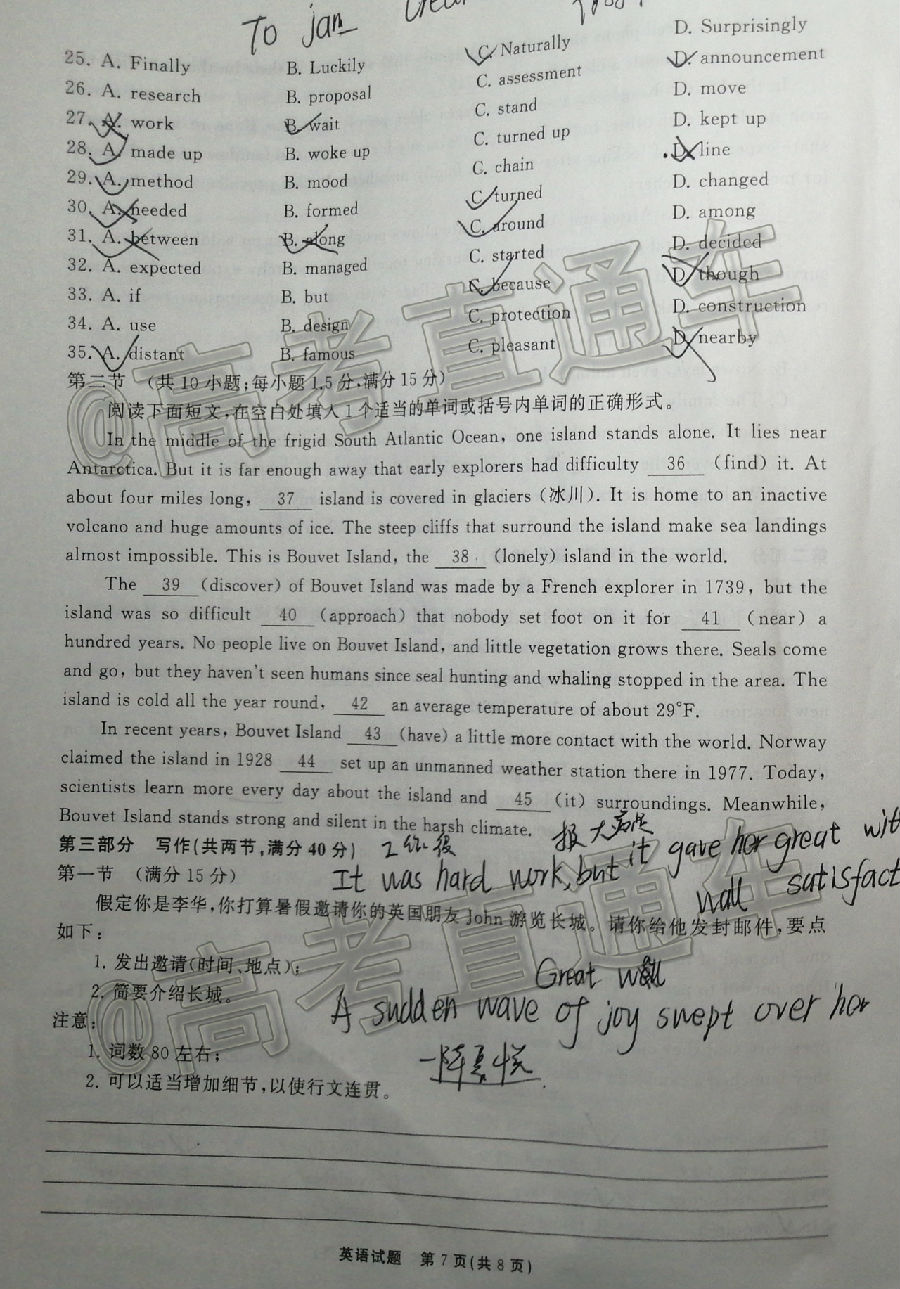 To jam
25. A. Finally B. Luckily C. Naturally D. Surprisingly
26. A. research B. proposal C. assessment D. announcement
27. A. work B. wait C. stand D. move
28. A. made up B. woke up C. turned up D. kept up
29. A. method B. mood C. chain D. line
30. A. needed B. formed C. turned D. changed
31. A. between B. along C. around D. among
32. A. expected B. managed C. started D. decided
33. A. if B. but C. because D. though
34. A. use B. design C. protection D. construction
35. A. distant B. famous C. pleasant D. nearby
第二节 (共10小题;每小题1.5分,满分15分)
阅读下面短文,在空白处填入1个适当的单词或括号内单词的正确形式。
In the middle of the frigid South Atlantic Ocean, one island stands alone. It lies near
Antarctica. But it is far enough away that early explorers had difficulty 36 (find) it. At
about four miles long, 37 island is covered in glaciers (冰川). It is home to an inactive
volcano and huge amounts of ice. The steep cliffs that surround the island make sea landings
almost impossible. This is Bouvet Island, the 38 (lonely) island in the world.
The 39 (discover) of Bouvet Island was made by a French explorer in 1739, but the
island was so difficult 40 (approach) that nobody set foot on it for 41 (near) a
hundred years. No people live on Bouvet Island, and little vegetation grows there. Seals come
and go, but they haven't seen humans since seal hunting and whaling stopped in the area. The
island is cold all the year round, 42 an average temperature of about 29°F.
In recent years, Bouvet Island 43 (have) a little more contact with the world. Norway
claimed the island in 1928 44 set up an unmanned weather station there in 1977. Today,
scientists learn more every day about the island and 45 (it) surroundings. Meanwhile,
Bouvet Island stands strong and silent in the harsh climate.
第三部分 写作(共两节,满分40分)
第一节 (满分15分)
It was hard work, but it gave her great with
satisfact
wall
假定你是李华,你打算暑假邀请你的英国朋友John游览长城。请你给他发封邮件,要点
如下:
1. 发出邀请(时间、地点);
2. 简要介绍长城。
Great wall
注意:
A sudden wave of joy swept over her
1. 词数80左右;
2. 可以适当增加细节,以使行文连贯。
一阵喜悦
英语试题 第7页(共8页)
@高考直通车
@高考直通车